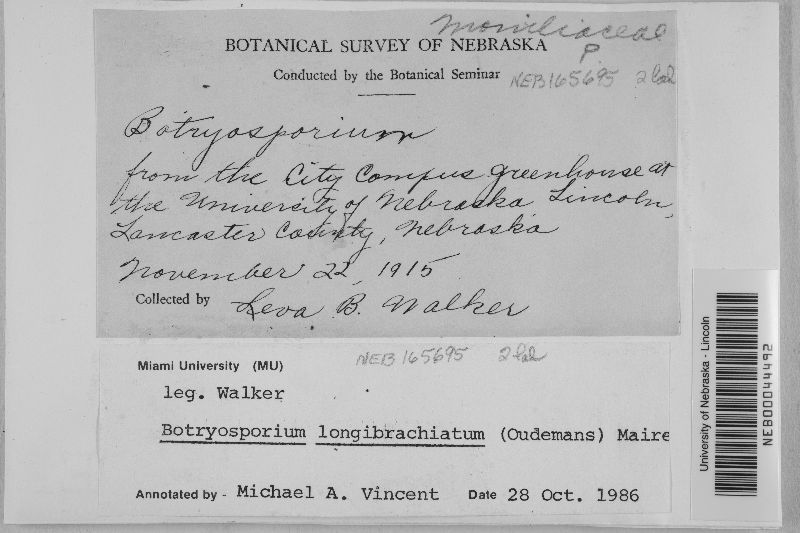 Moniliaceae
P
BOTANICAL SURVEY OF NEBRASKA
Conducted by the Botanical Seminar
NEB165695 2 fol
Botryosporium
from the City Campus greenhouse at
the University of Nebraska Lincoln,
Lancaster County, Nebraska
November 22, 1915
Collected by Leva B. Walker
NEB165695 2 fol
Miami University (MU)
leg. Walker
Botryosporium longibrachiatum (Oudemans) Maire
Annotated by - Michael A. Vincent Date 28 Oct. 1986
University of Nebraska - Lincoln
NEB00044492